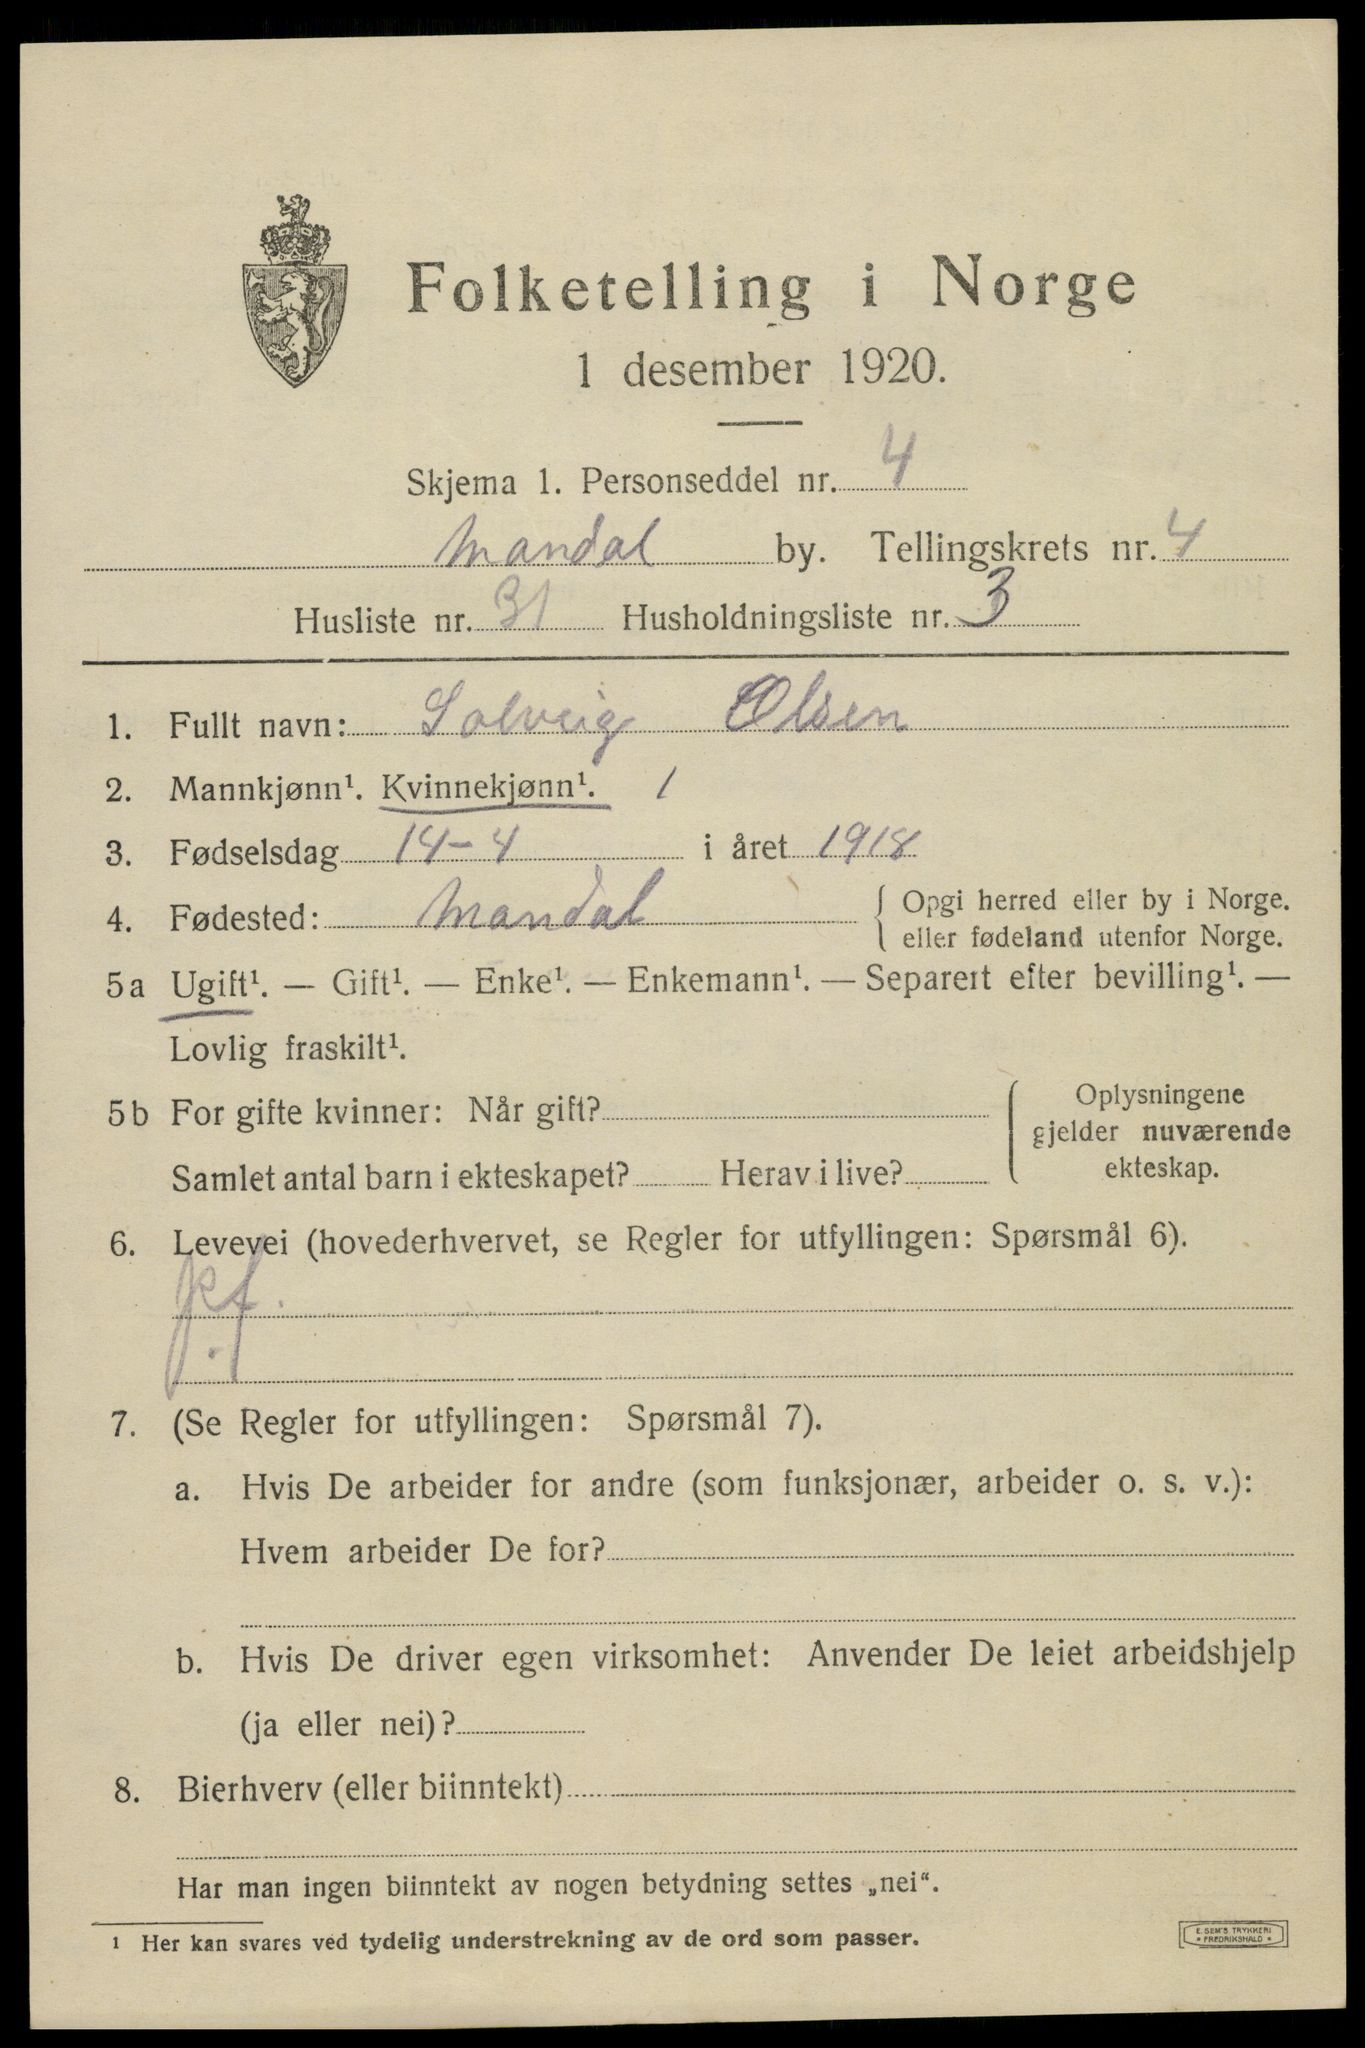 Folketelling i Norge
1 desember 1920.
Skjema 1. Personseddel nr. 4
Mandal by. Tellingskrets nr. 4
Husliste nr. 31 Husholdningsliste nr. 3
1. Fullt navn: Solveig Olsen
2. Mannkjønn¹. Kvinnekjønn¹. 1
3. Fødselsdag 14-4 i året 1918
4. Fødested: Mandal { Opgi herred eller by i Norge.
eller fødeland utenfor Norge.
5a Ugift¹. — Gift¹. — Enke¹. — Enkemann¹. — Separert efter bevilling¹. —
Lovlig fraskilt¹.
5b For gifte kvinner: Når gift?
Samlet antal barn i ekteskapet? Herav i live?
Oplysningene
gjelder nuværende
ekteskap.
6. Levevei (hovederhvervet, se Regler for utfyllingen: Spørsmål 6).
7. (Se Regler for utfyllingen: Spørsmål 7).
a. Hvis De arbeider for andre (som funksjonær, arbeider o. s. v.):
Hvem arbeider De for?
b. Hvis De driver egen virksomhet: Anvender De leiet arbeidshjelp
(ja eller nei)?
8. Bierhverv (eller biinntekt)
Har man ingen biinntekt av nogen betydning settes „nei“.
¹ Her kan svares ved tydelig understrekning av de ord som passer.
E. SEM'S TRYKKERI
* FREDRIKSHALD *